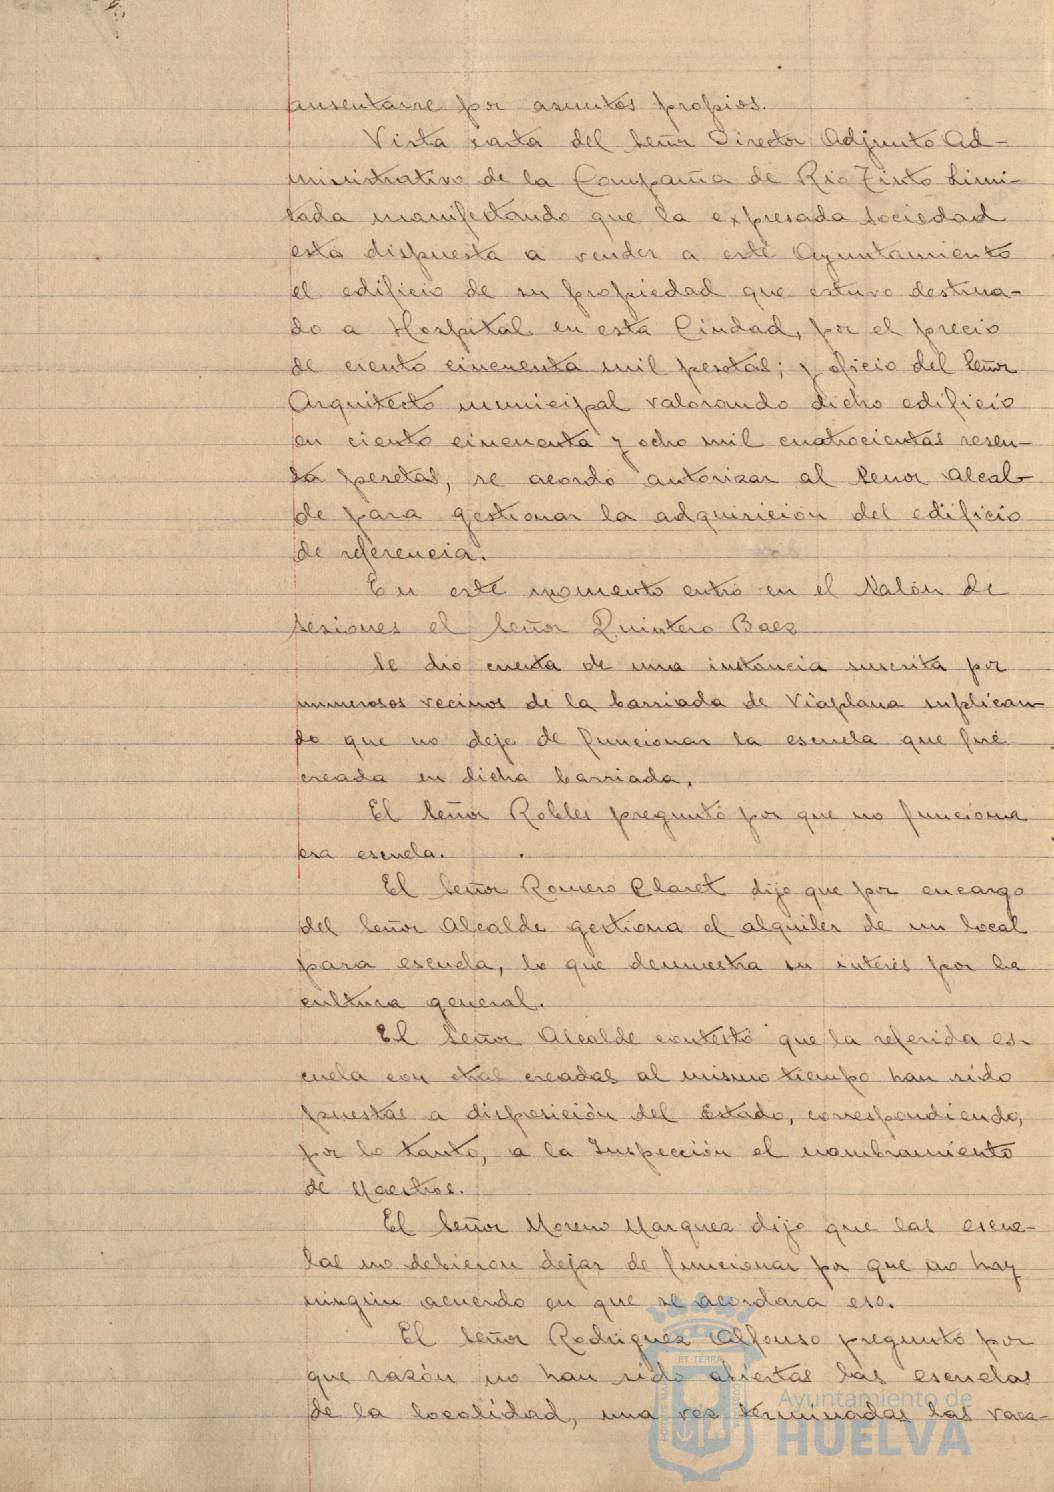 ausentarse por asuntos propios.
Vista carta del Señor Director Adjunto Ad-
ministrativo de la Compañia de Rio Tinto Limi-
tada manifestando que la expresada sociedad
está dispuesta a vender a este Ayuntamiento
el edificio de su propiedad que estuvo destina-
do a Hospital en esta Ciudad, por el precio
de ciento cincuenta mil pesetas; y oficio del Señor
Arquitecto municipal valorando dicho edificio
en ciento cincuenta y ocho mil cuatrocientas sesen-
ta pesetas, se acordó autorizar al Señor Alcal-
de para gestionar la adquisición del edificio
de referencia.
En este momento entró en el Salón de
Sesiones el Señor Quintero Baez
Se dió cuenta de una instancia suscrita por
numerosos vecinos de la barriada de Viaplana suplican-
do que no deje de funcionar la escuela que fué
creada en dicha barriada.
El Señor Robles preguntó por que no funciona
esa escuela.
El Señor Romero Claret dijo que por encargo
del Señor Alcalde gestiona el alquiler de un local
para escuela, lo que demuestra su interés por la
cultura general.
El Señor Alcalde contestó que la referida es-
cuela con otras creadas al mismo tiempo han sido
puestas a disposición del Estado, correspondiendo,
por lo tanto, a la Inspección el nombramiento
de Maestros.
El Señor Moreno Marquez dijo que las escue-
las no debieron dejar de funcionar por que no hay
ningún acuerdo en que se acordara eso.
El Señor Rodriguez Alfonso preguntó por
que razón no han sido abiertas las escuelas
de la localidad, una vez terminadas las vaca-
Ayuntamiento de
HUELVA